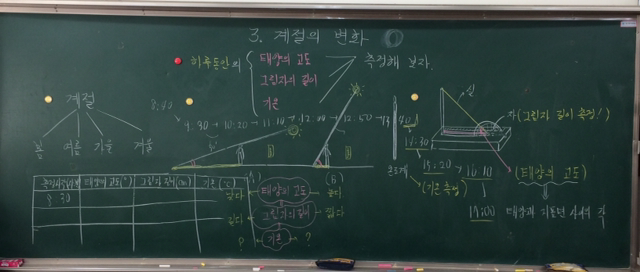 3. 계절의 변화
하루동안의
태양의 고도
그림자의 길이
기온
측정해 보자.
계절
봄 여름 가을 겨울
8:40
9:30 → 10:20 → 11:10 → 12:00 → 12:50 →
실
자(그림자 길이 측정!)
14:30
15:20 → 16:10
(기온 측정)
(태양의 고도)
17:00 태양과 지표면 사이의 각
태양의 고도(°) 그림자 길이(cm) 기온(℃)
9:30
(A) (B)
낮다 태양의 고도 높다
길다 그림자의 길이 짧다
? 기온 ?